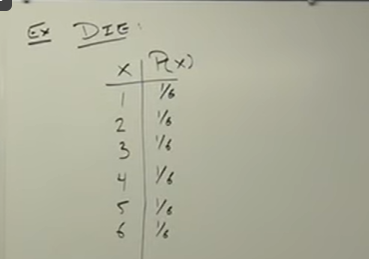 Ex DIE:
x P(x)
1 1/6
2 1/6
3 1/6
4 1/6
5 1/6
6 1/6